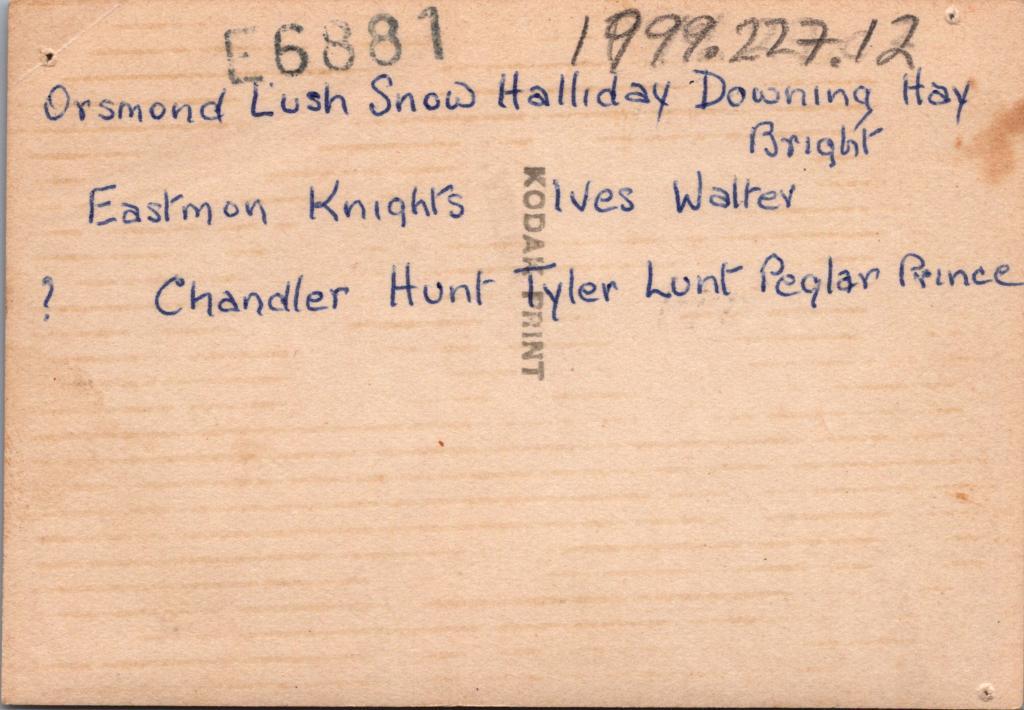 E6881 1999.227.12
Orsmond Lush Snow Halliday Downing Hay
Bright
Eastmon Knights Ives Walter
? Chandler Hunt Tyler Lunt Peglar Prince
KODAK PRINT